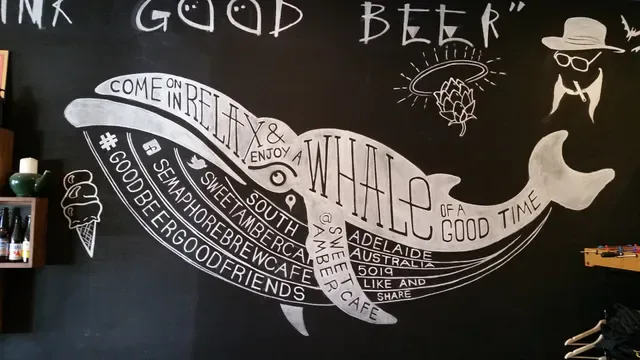 INK GOOD BEER"
COME ON IN RELAX & ENJOY A WHALE OF A GOOD TIME
#GOODBEERGOODFRIENDS
SEMAPHOREBREWCAFE
SWEETAMBERCA
SOUTH
@ SWEET
AMBER CAFE
ADELAIDE
AUSTRALIA
5019
LIKE AND
SHARE